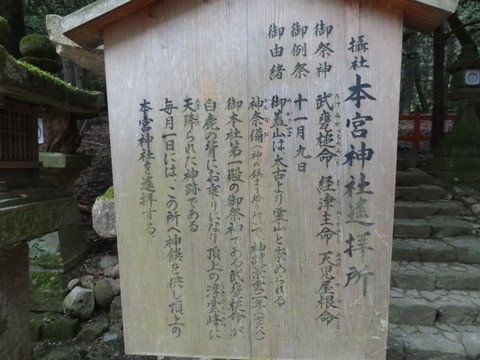 攝社 本宮神社遙拝所
御祭神 武甕槌命 経津主命 天児屋根命
御例祭 十一月九日
御由緒 御蓋山は太古より霊山と崇められる
神奈備(神の鎮まり給ふ所)で、神護景雲二年(七六八)
御本社第一殿の御祭神である武甕槌命が
白鹿の背にお乗りになり頂上の浮雲峰に
天降られた神跡である
毎月一日には、この所へ神饌を供し頂上の
本宮神社を遙拝する。